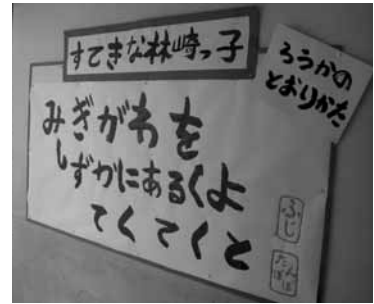 すてきな林崎っ子
ろうかの
とおりかた
みぎがわを
しずかにあるくよ
てくてくと
ふじ
たんぽぽ